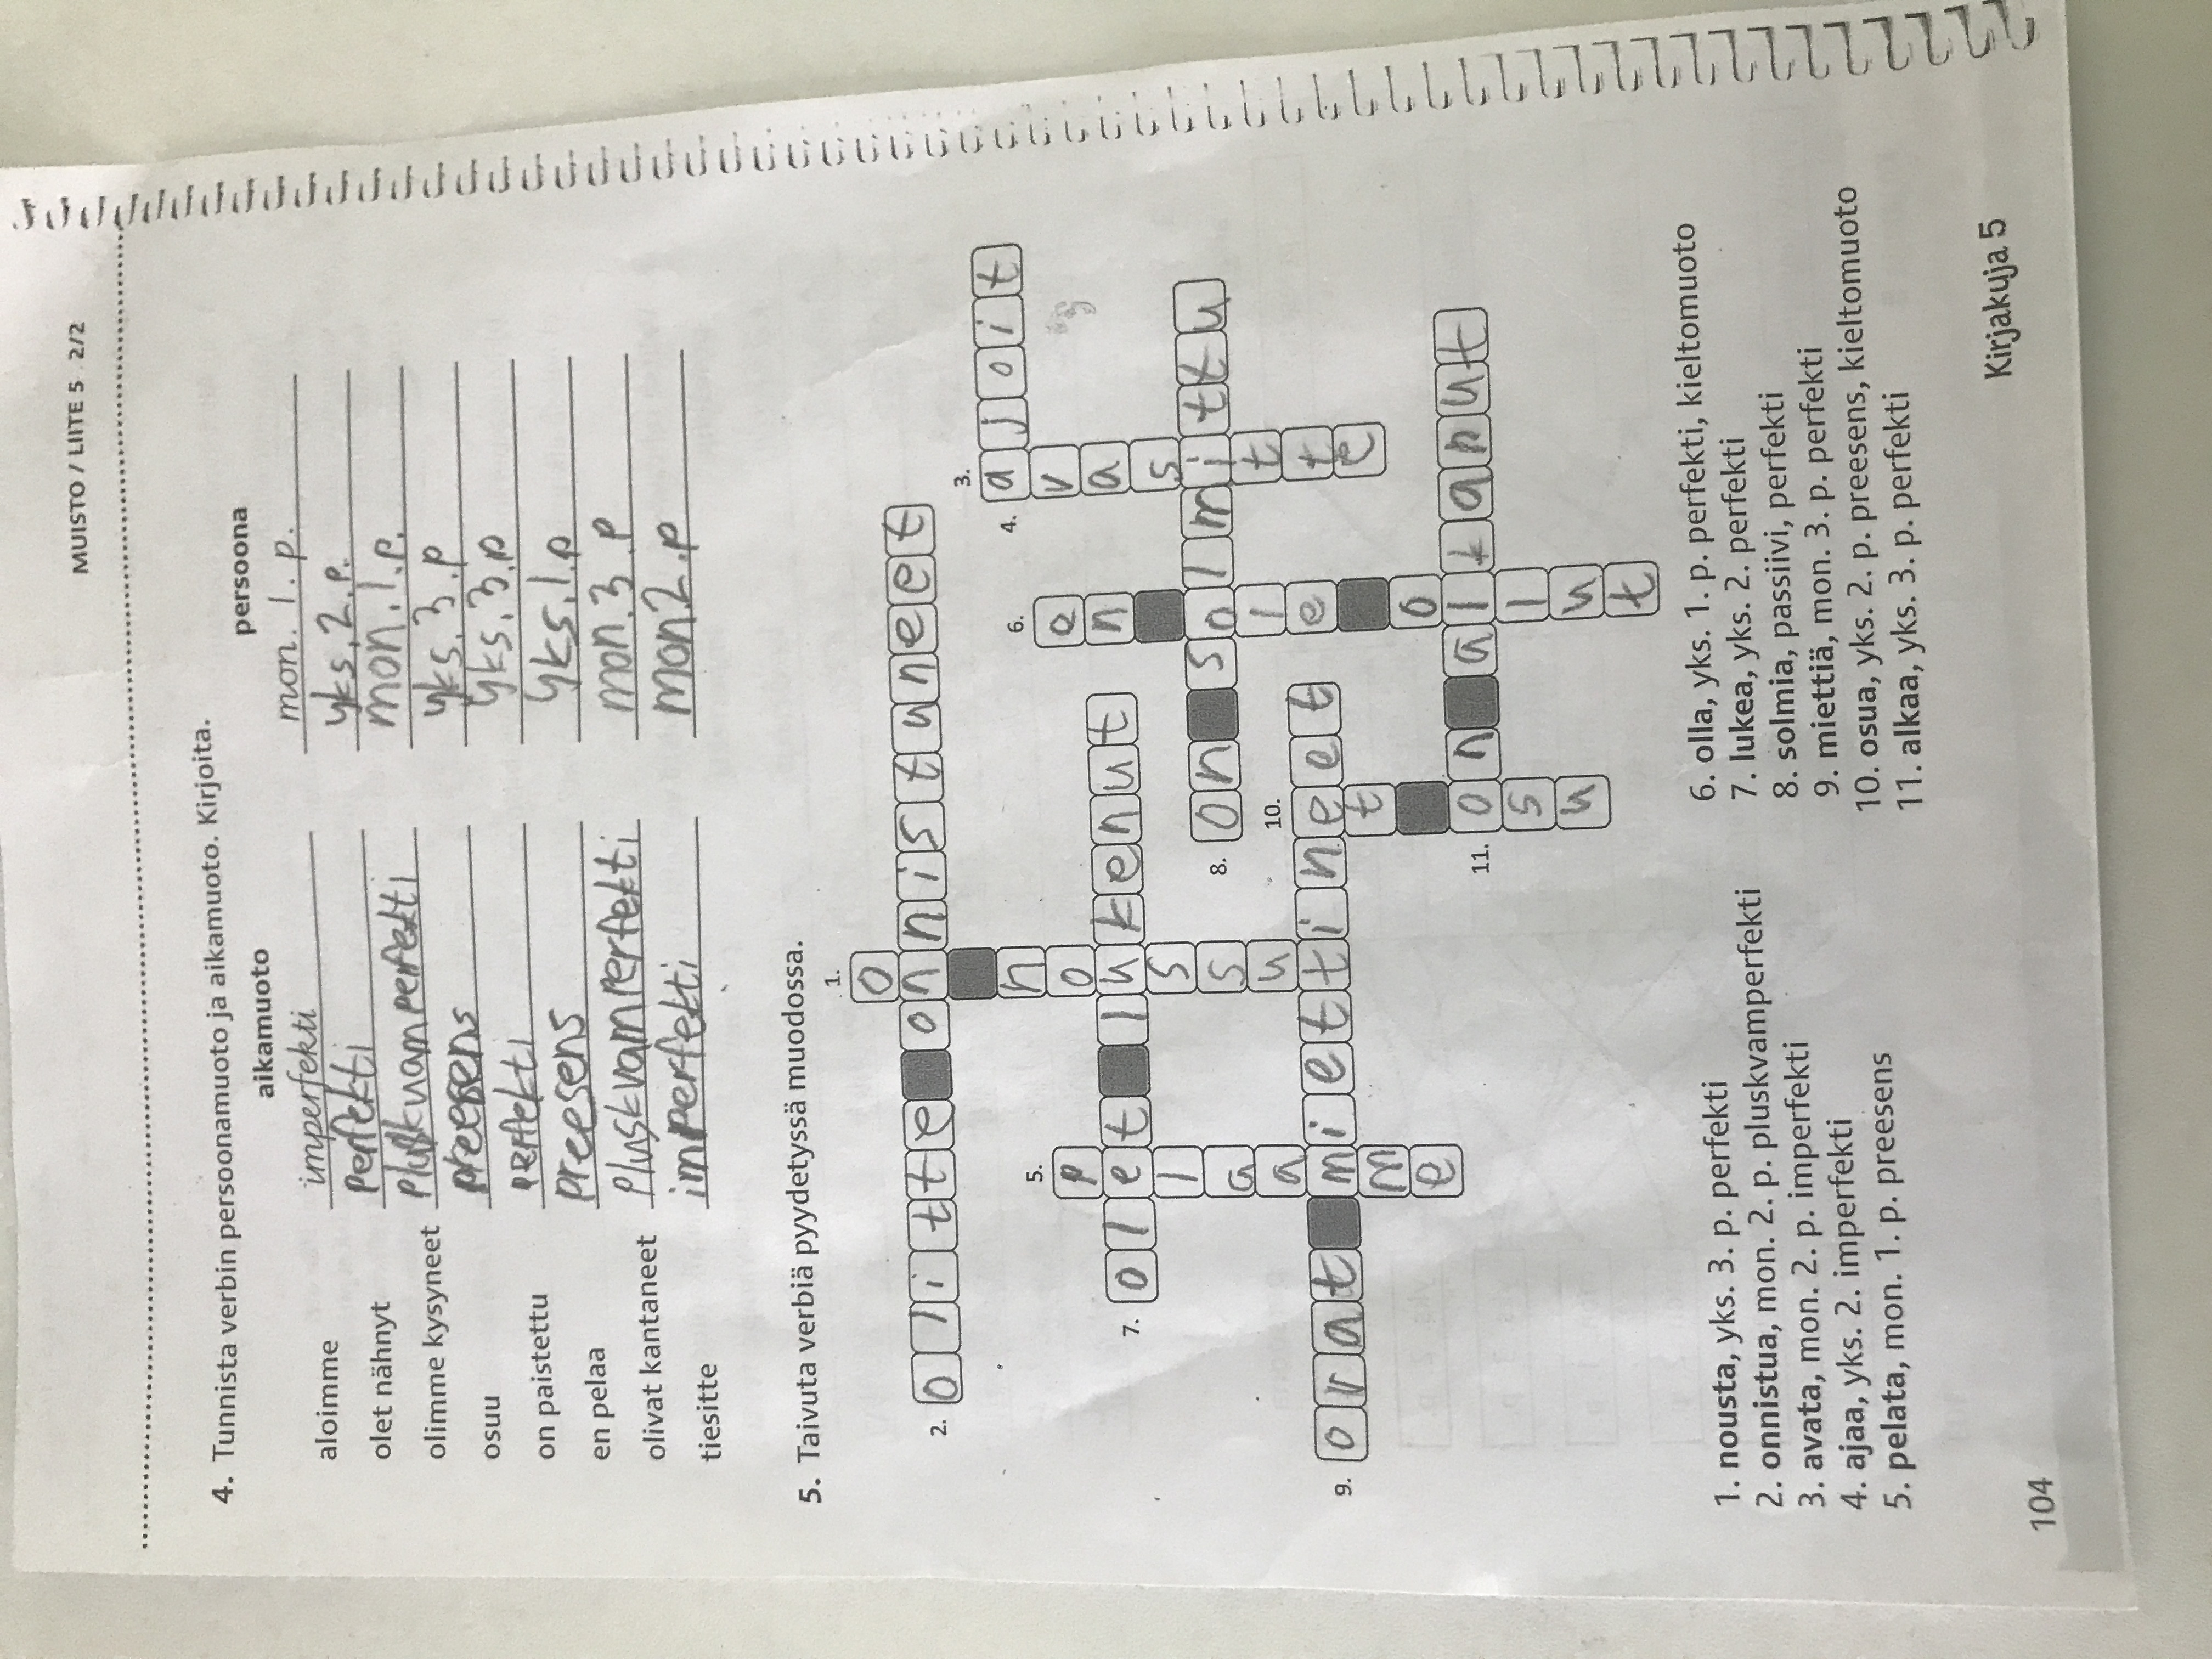 MUISTO / LIITE 5 2/2
4. Tunnista verbin persoonamuoto ja aikamuoto. Kirjoita.
aikamuoto persoona
aloimme imperfekti mon. 1. p.
olet nähnyt perfekti yks. 2. p.
olimme kysyneet pluskvamperfekti mon. 1. p.
osuu preesens yks. 3. p
on paistettu perfekti yks. 3. p
en pelaa preesens yks. 1. p
olivat kantaneet pluskvamperfekti mon. 3. p
tiesitte imperfekti mon 2. p
5. Taivuta verbiä pyydetyssä muodossa.
1. on noussut
2. olitte onnistuneet
3. avasitte
4. ajoit
5. pelaamme
6. en ole ollut
7. olet lukenut
8. on solmittu
9. ovat miettineet
10. et osu
11. on alkanut
1. nousta, yks. 3. p. perfekti
2. onnistua, mon. 2. p. pluskvamperfekti
3. avata, mon. 2. p. imperfekti
4. ajaa, yks. 2. imperfekti
5. pelata, mon. 1. p. preesens
6. olla, yks. 1. p. perfekti, kieltomuoto
7. lukea, yks. 2. perfekti
8. solmia, passiivi, perfekti
9. miettiä, mon. 3. p. perfekti
10. osua, yks. 2. p. preesens, kieltomuoto
11. alkaa, yks. 3. p. perfekti
104
Kirjakuja 5